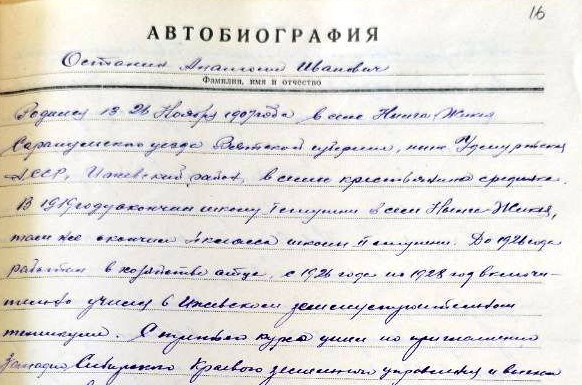 16
АВТОБИОГРАФИЯ
Останин Анатолий Иванович
Фамилия, имя и отчество
Родился 13-26 Ноября 1907 года в селе Нынга-Жикья
Сарапульского уезда Вятской губернии, ныне Удмуртская
АССР, Ижевский район, в семье крестьянина середняка.
В 1919 году окончил школу I ступени в селе Нынга-Жикья,
там же окончил 4 класса школы II ступени. До 1926 года
работал в хозяйстве отца, с 1926 года по 1928 год включи-
тельно учился в Ижевском землеустроительном
техникуме. С третьего курса ушел по приглашению
Западно-Сибирского Краевого земельного управления и